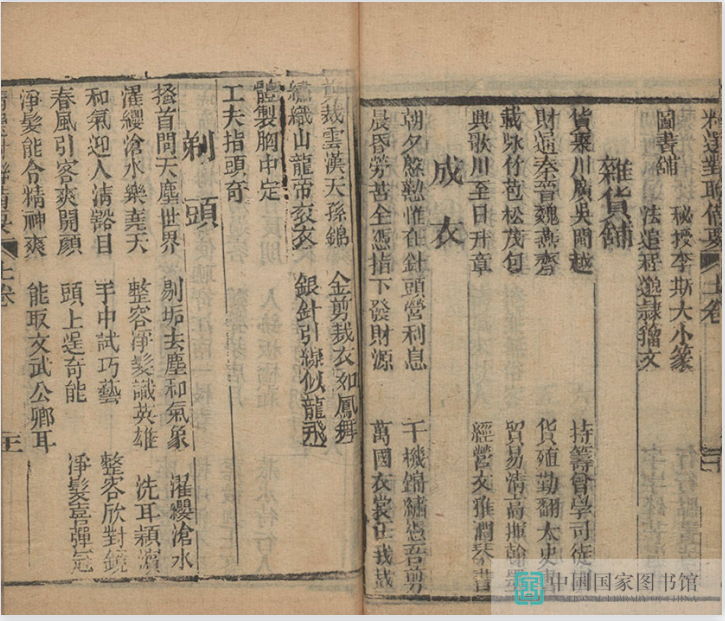 對聯備要 上卷
秘授李斯大小篆
圖書舖 法遵程邈隸籀文
雜貨舖
貨聚川廣吳閩越 持籌曾學司徒
財通秦晉魏燕齊 貨殖勤翻太史
載咏竹苞松茂句 貿易清高揮翰墨
興歌川至日升章 經營文雅潤琴書
成衣
朝夕慇懃惟在針頭營利息 千機錦繡憑吾剪
晨昏勞苦全憑指下發財源 萬國衣裳在我裁
裁雲漢天孫錦 金剪裁衣如鳳舞
繡織山龍帝袞衣 銀針引線似龍飛
體製胸中定
工夫指頭奇
剃頭
搔首問天塵世界 剔垢去塵和氣象 濯纓滄水
濯纓滄水樂堯天 整容淨髮識英雄 洗耳穎濱
和氣迎人清豁目 手中試巧藝 整容欣對鏡
春風引客爽開顏 頭上逞奇能 淨髮喜彈冠
淨髮能令精神爽 能取文武公卿耳
上卷
中国国家图书馆